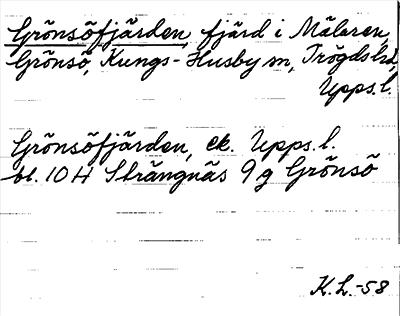 Grönsöfjärden, fjärd i Mälaren,
Grönsö, Kungs-Husby sn, Trögds hd,
Upps.l.
Grönsöfjärden, ek. Upps.l.
bl. 10 H Strängnäs 9 g Grönsö
K.L.-58